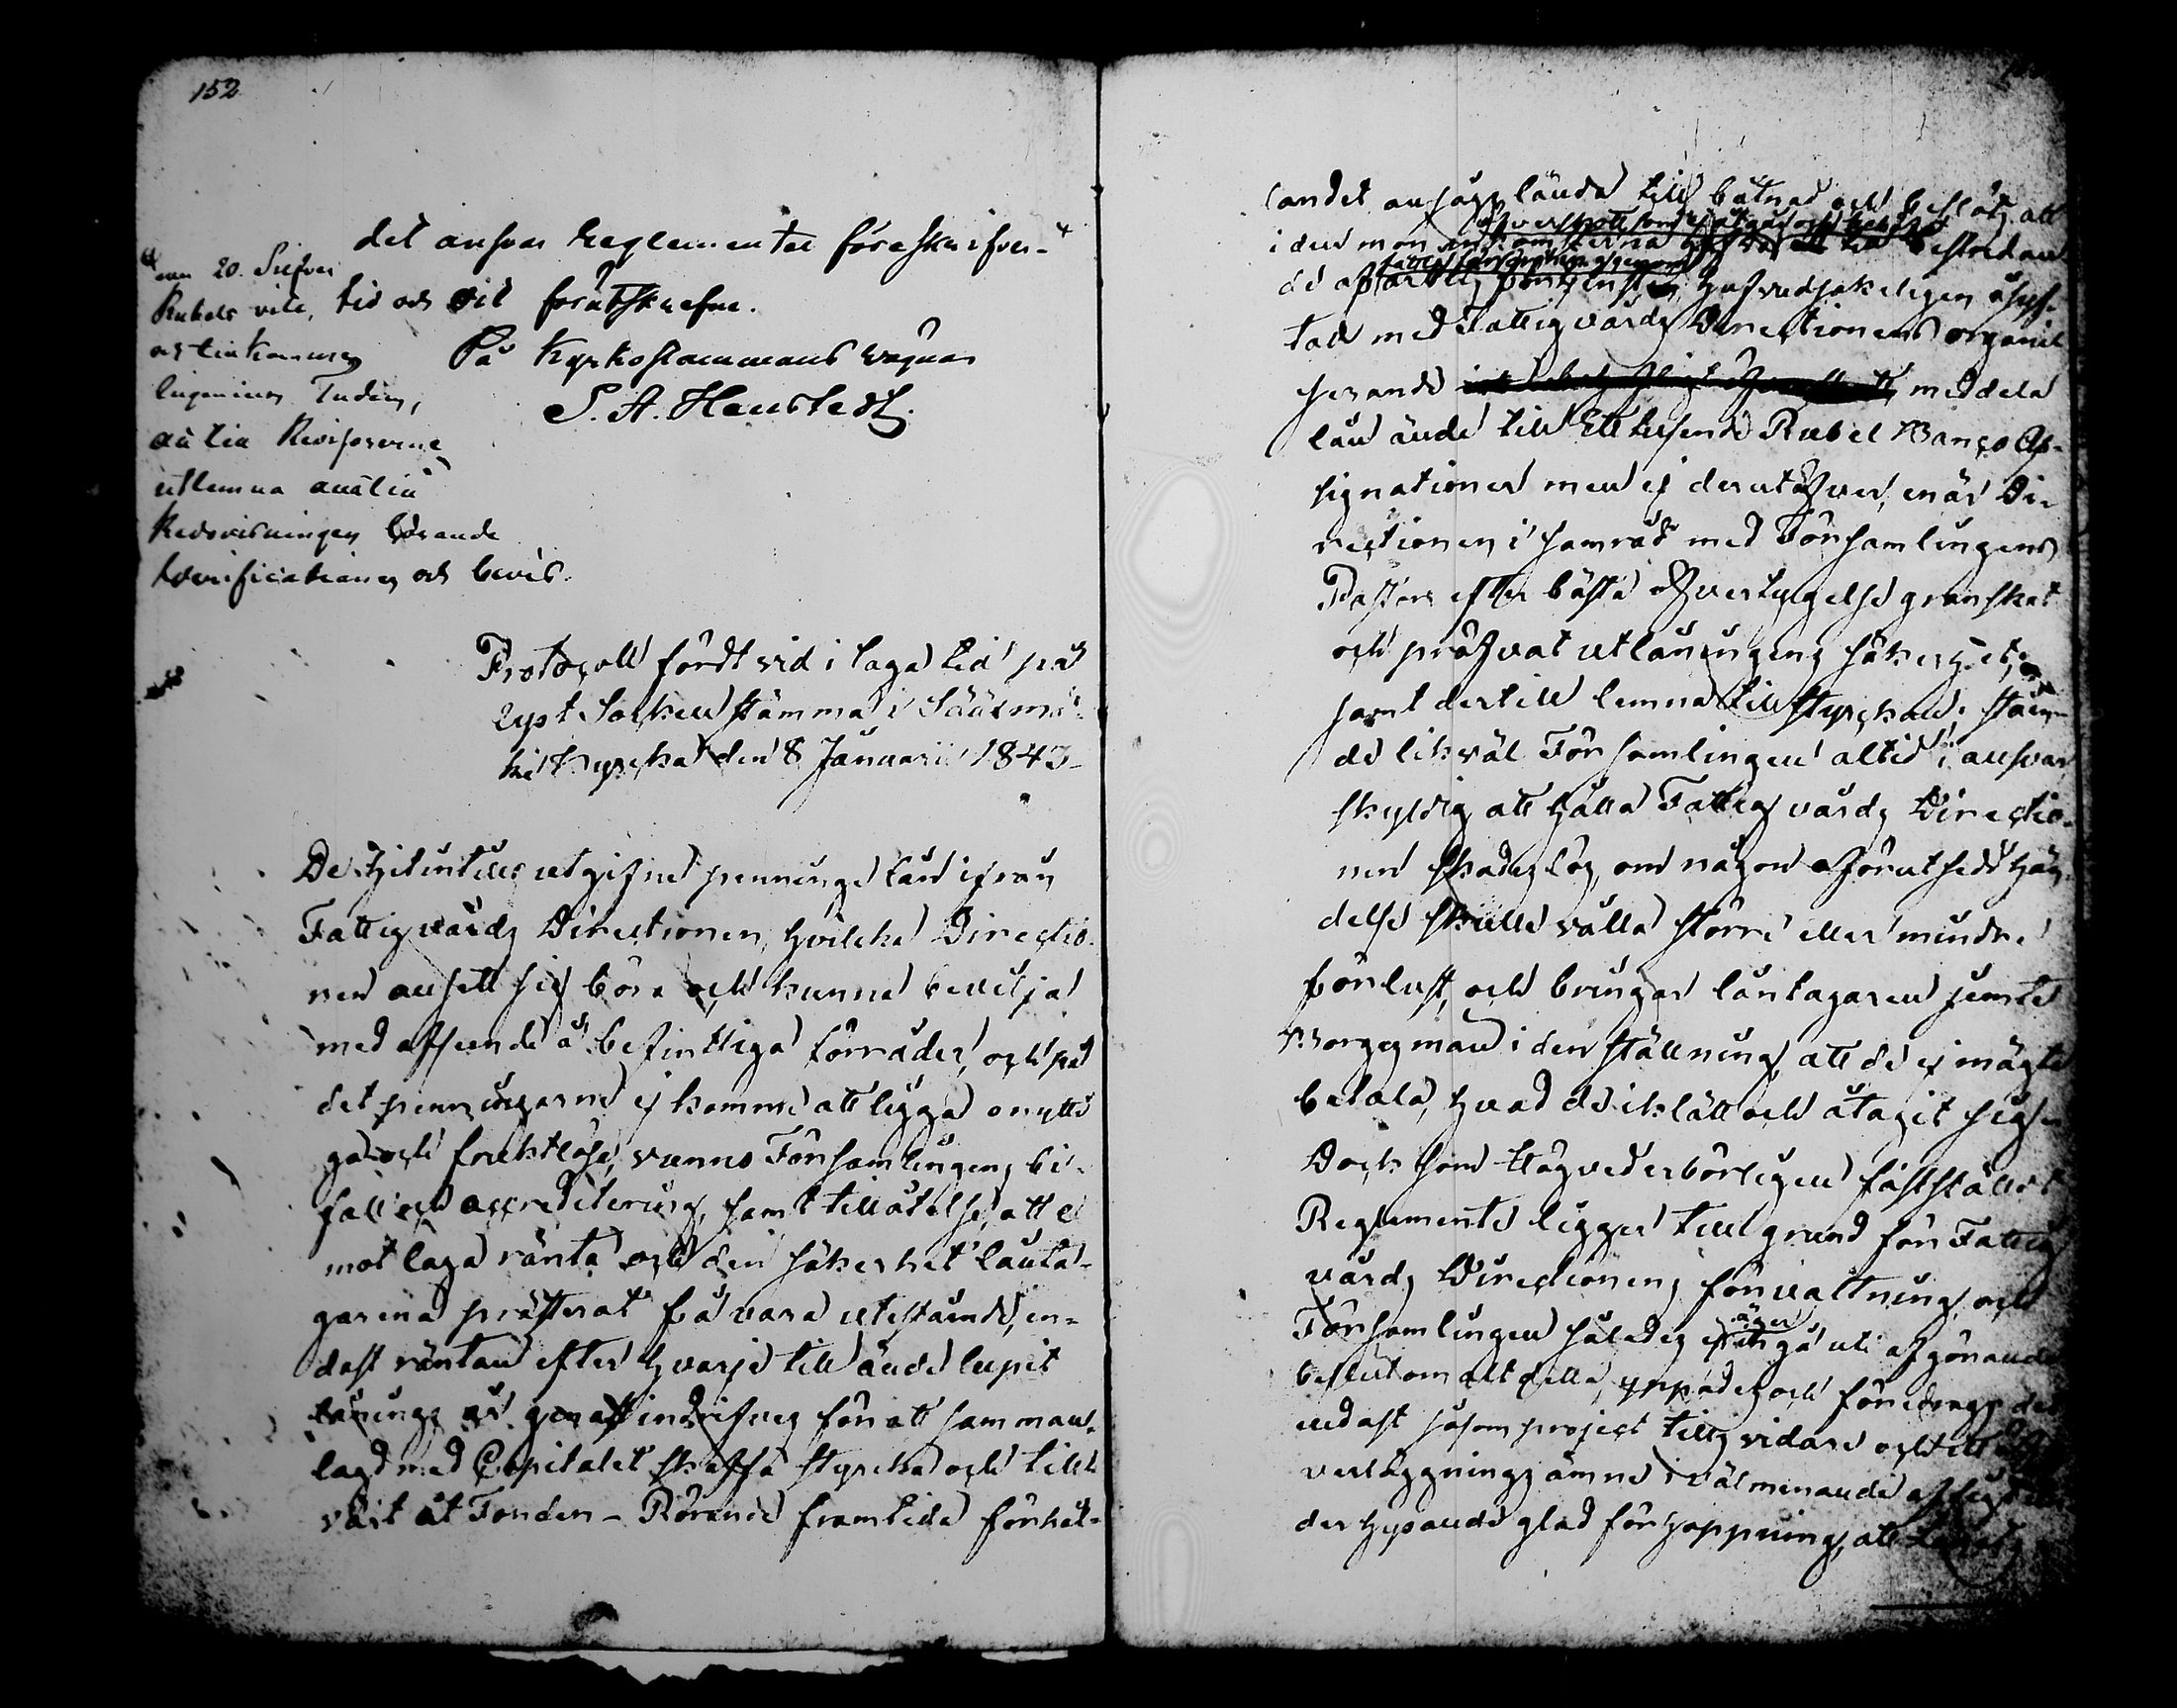 152
det ansvar Reglementer föreskrifver
tid och vit förutskrefne.
På Kyrkostämmans vägnar
S. A. Henstedt.
om 20. Silfver
Rubels vite,
Ingenium Tuden,
åtlia Revisorerne
utlemna
Redovisningen hörande
Verificationer och bevis.
Protocoll fördt vid i laga tid på
lyst Sockenstämma i Sääxmä-
ki Kyrcka den 8 Januarii 1843
De hitintills utgifne penninge lån ifrån
Fattigvårds Directionen, hvilcka Directio-
nen ansett sig böra och kunna bevilja
med afseende å befintliga förråder, och på
det penningarne ej komme att ligga onytti-
ga och fruktlösa, vunno Församlingens bi-
fall och accreditering, samt tillåtelse, att e
mot laga ränta och den säkerhet lånta-
garena præsterat få vara utestående, en-
dast räntan efter hvarje till ände lupit
lånings år genast indrifves för att samman-
lagd med Capitalet skaffa styrcka och till-
växt åt Fonden - Rörande framtida förhål-
landet ansågs lända till båtnad och beslöts, att
i den mon
de af hufvudsakeligen åsyf-
tad med Fattigvårds Directionens organi-
serande meddela
lån ände till Ett tusende Rubel Banco As-
signationer men ej derutöfver, enär Di-
rectionen i samråd med Församlingens
Pastor efter bästa öfvertygelse granskat
och pröfvat utlåningens säkerhet,
samt dertill lemnat tillstyrckan; ståen-
de likväl Församlingen altid i ansvar
skyldig att hålla Fattigvårds Directio-
nen skadeslös, om någon oförutsedd hän-
delse skulle vålla större eller mindre
förlust, och bringar låntagaren jemte
Borgesman i den ställning, att de ej mägta
betala, hvad de iklädt och åtagit sig.
Dock som Högvederbörligen fastställdt
Reglemente ligger till grund för Fattig
vårds Directionens förvaltning, och
Församlingen således ej äger ingå uti afgörande
beslut om alt detta, yppades och föredrags det
endast såsom project tills vidare och till öf-
verläggnings ämne i välmenande afsigt
der hysande glad förhoppning, att